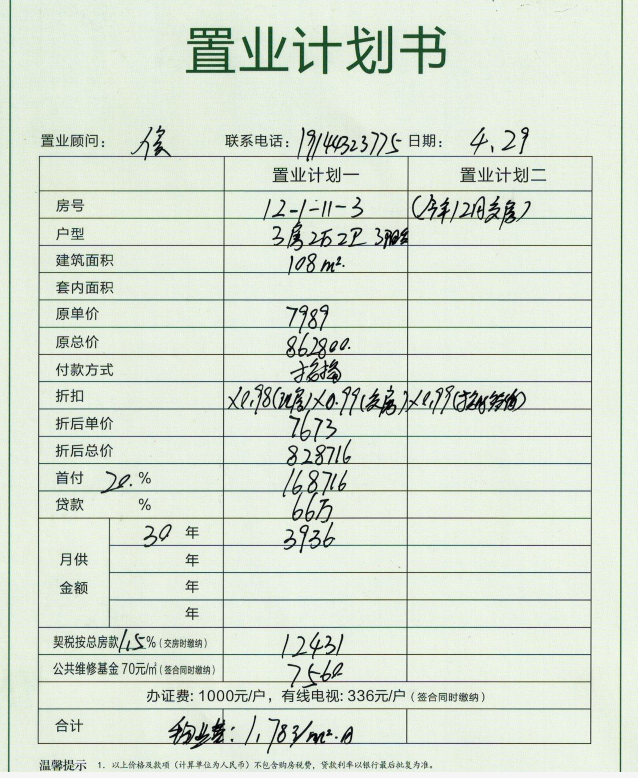 置业计划书
置业顾问： 联系电话：19144323775 日期：4.29
置业计划一 置业计划二
房号 12-1-11-3 (今年12月交房)
户型 3房2厅2卫 3阳台
建筑面积 108m².
套内面积
原单价 7989
原总价 862800.
付款方式 按揭
折扣 ×0.98(现房)×0.99(交房)×0.99(按时签约)
折后单价 7673
折后总价 828716
首付 20.% 168716
贷款 % 66万
月供金额 30年 3936
年
年
年
契税按总房款1.5%(交房时缴纳) 12431
公共维修基金70元/㎡(签合同时缴纳) 7560
办证费:1000元/户，有线电视:336元/户(签合同时缴纳)
合计 物业费：1.783/m².月
温馨提示 1、以上价格及款项（计算单位为人民币）不包含购房税费，贷款利率以银行最后批复为准。